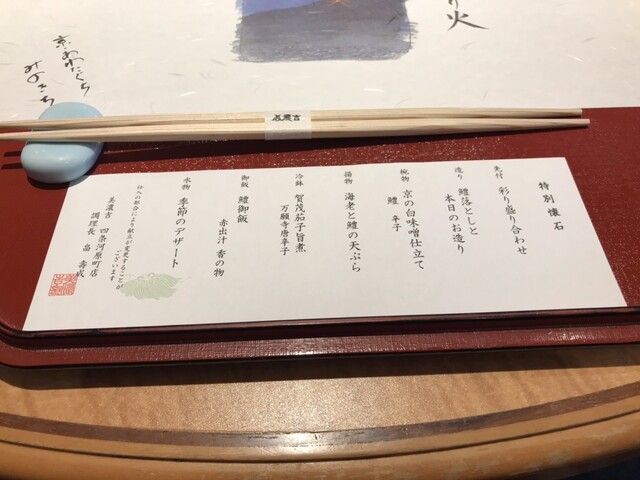 り火
京あわたぐち
みのきち
美濃吉
特別懐石
先付
彩り盛り合わせ
造り
鱧落としと
本日のお造り
椀物
京の白味噌仕立て
鱧
辛子
揚物
海老と鱧の天ぷら
冷鉢
賀茂茄子旨煮
万願寺唐辛子
御飯
鱧御飯
赤出汁 香の物
水物
季節のデザート
仕入の都合により献立が変更することが
ございます
美濃吉 四条河原町店
調理長 畠 壽成